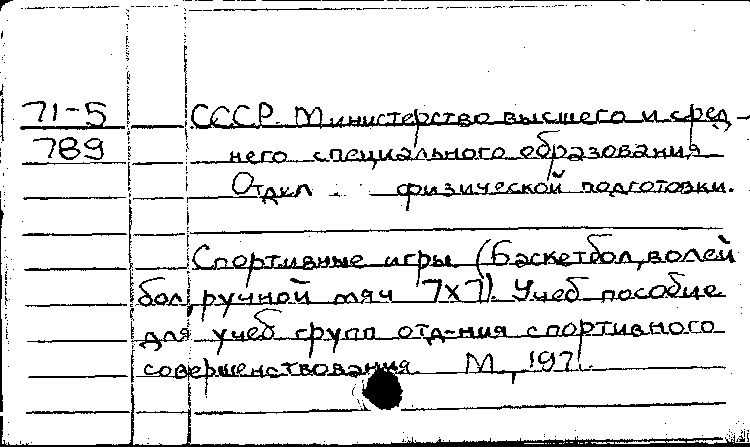 71-5 СССР. Министерство высшего и сред-
789 него специального образования
Отдел физической подготовки.
Спортивные игры (Баскетбол, волей
бол, ручной мяч 7х7). Учеб пособие
для учеб групп отд-ния спортивного
совершенствования М., 1971.